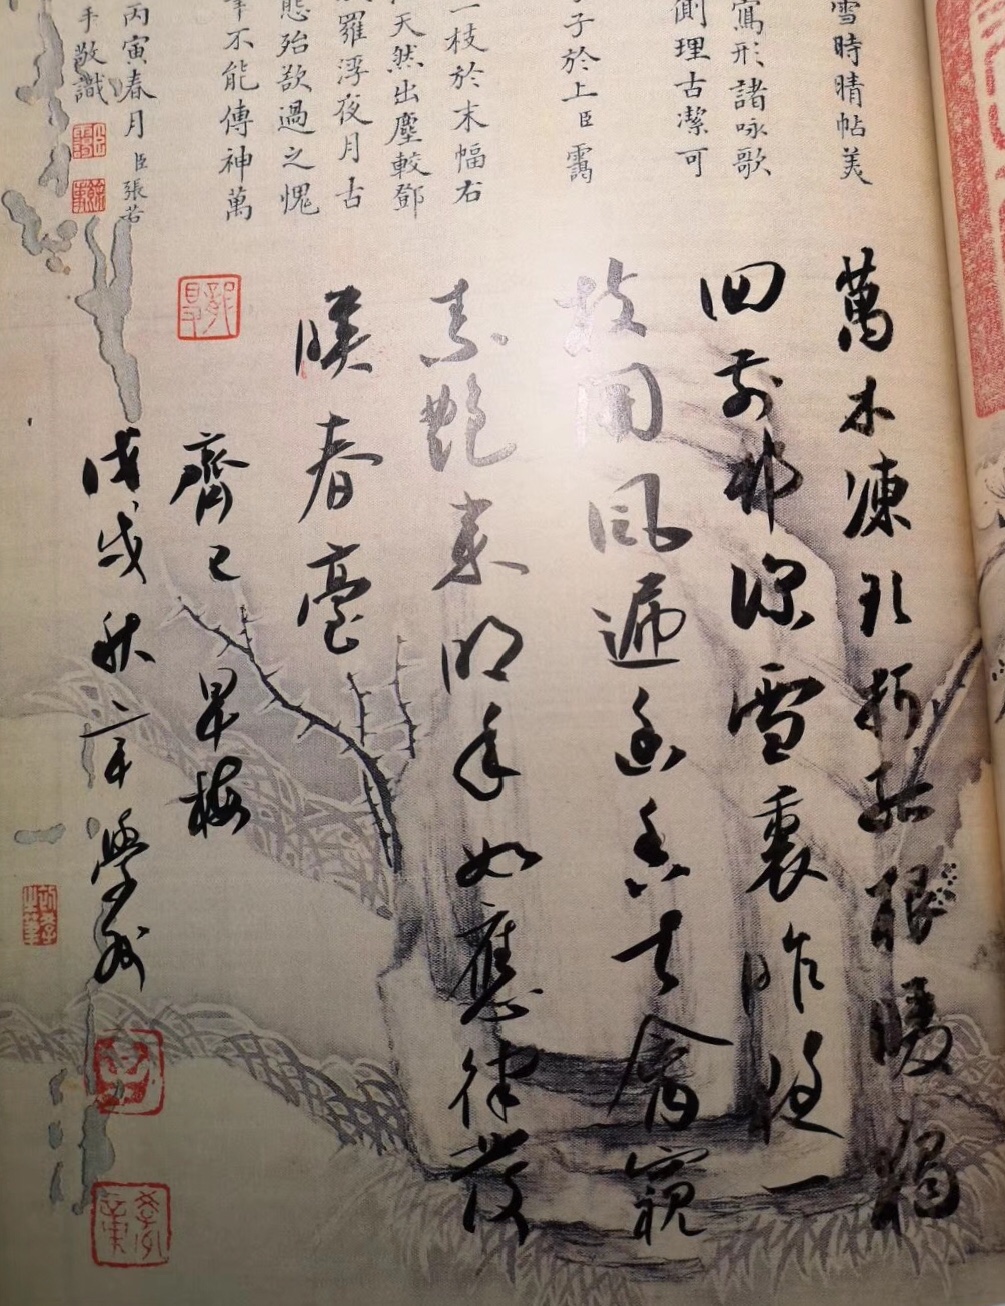 雪時晴帖美
形諸咏歌
側理古潔可
子於上臣靄
一枝於末幅右
天然出塵較鄧
羅浮夜月古
態殆欲過之愧
不能傳神萬
丙寅春月臣張若
手敬識
萬木凍欲折孤根暖獨
回前邨深雪裏昨夜一
枝開風遞幽香出禽窺
素艷來明年如應律發
映春臺
齊己早梅
戊戌秋章學